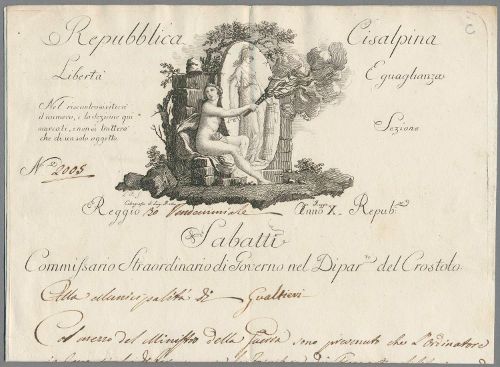 Repubblica Cisalpina
Libertà Eguaglianza
Nel riscontro si citerà
il numero, e la sezione qui
marcati, e non si tratterà
che di un solo oggetto.
Sezione
N.° 2005
Reggio 30 Vendemmiale Anno X. Repub.
Sabatti
Commissario Straordinario di Governo nel Dipar. del Crostolo
Alla Municipalità di Gualtieri
Col mezzo del Ministro della Guerra sono prevenuto che l'ordinatore